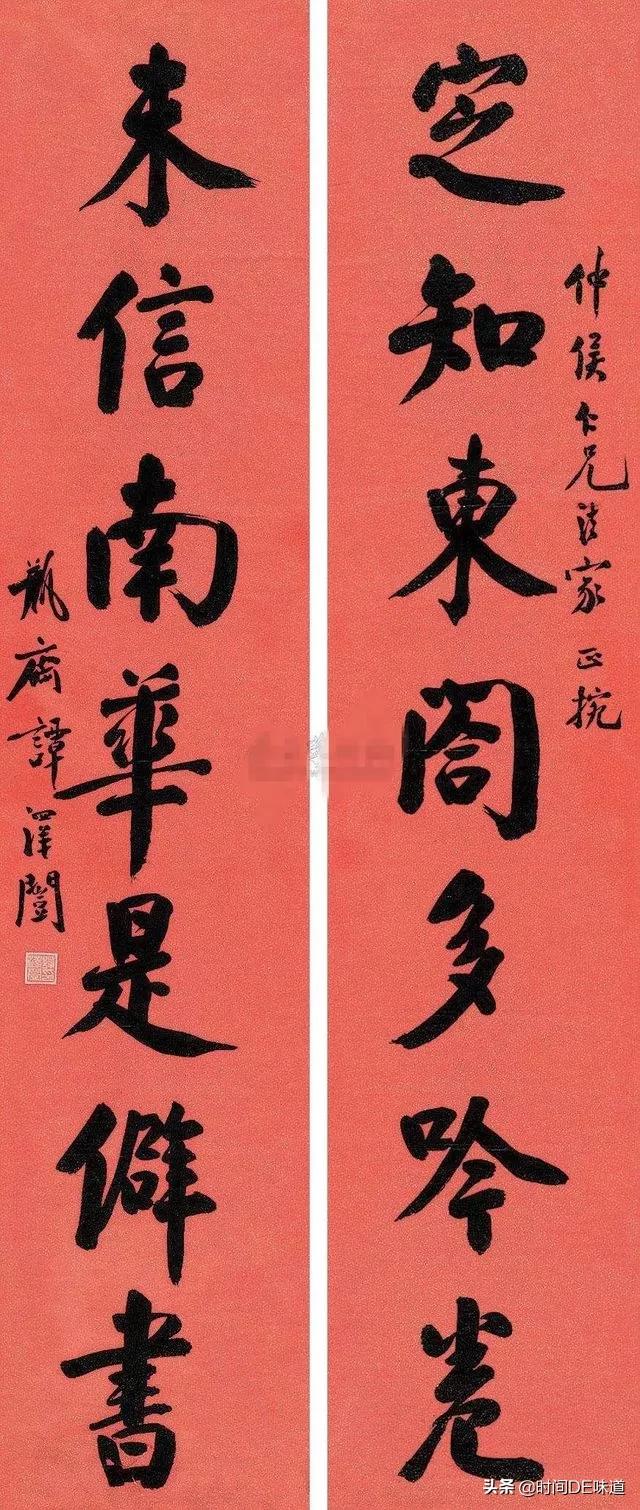 仲侯仁兄法家正捥
定知東閤多吟卷
未信南華是僻書
瓶齋譚澤闓
头条 @时间DE味道